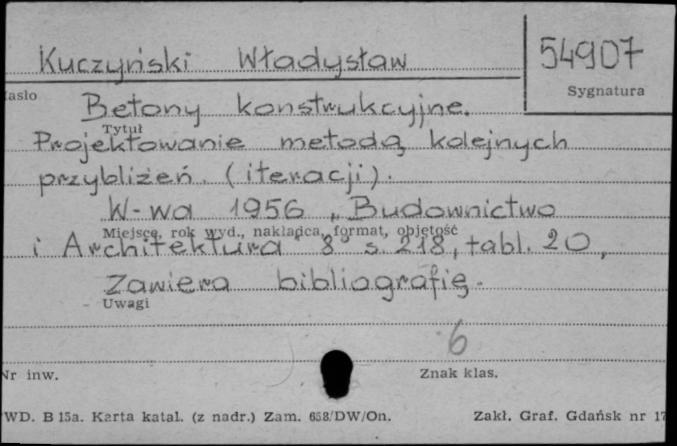 Kuczyński Władysław
54907
Sygnatura
asło
Betony konstrukcyjne.
Tytuł
Projektowanie metodą kolejnych
przybliżeń. (iteracji).
W-wa 1956 „Budownictwo
Miejsce, rok wyd., nakładca, format, objętość
i Architektura" 8° s. 218, tabl. 20,
Zawiera bibliografię.
Uwagi
6
Nr inw.
Znak klas.
WD. B 15a. Karta katal. (z nadr.) Zam. 658/DW/On.
Zakł. Graf. Gdańsk nr 17